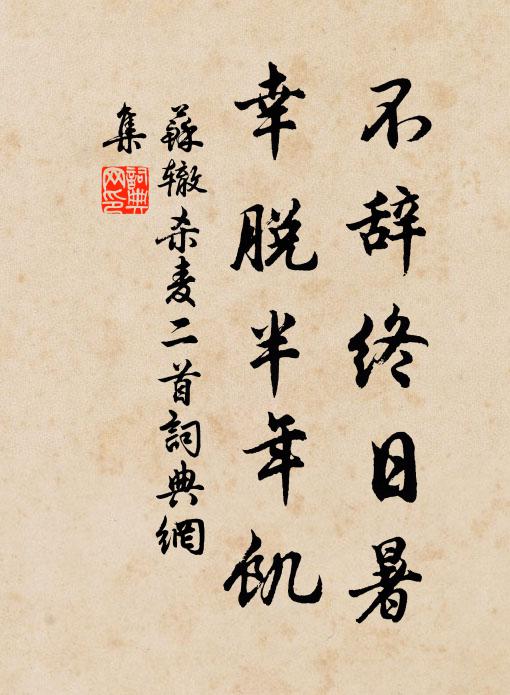 不辞终日暑
幸脱半年饥
苏辙杀麦二首词典網
集
詞典
网印